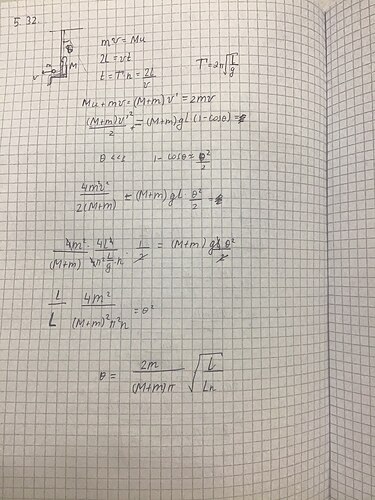 5.32.
m v = Mu
2L = vt
t = T·n = 2L/v
T = 2π√(l/g)
Mu + mv = (M+m) v' = 2mv
(M+m)v'²/2 = (M+m) gl (1-cosθ) =
θ <<< 1-cosθ = θ²/2
4m²v²/2(M+m) = (M+m) gl · θ²/2 =
4m²/(M+m) · 4L²/4π² l/g · n · 1/2 = (M+m) gl θ²/2
l/L 4m²/(M+m)²π²n = θ²
θ = 2m/(M+m)π √(l/Ln)